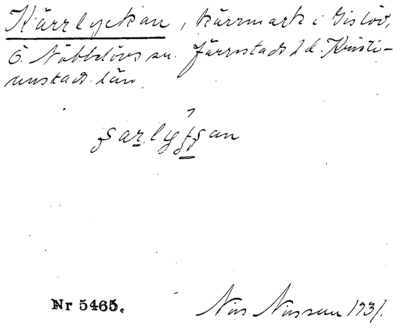 Kärrlyckan, kärrmark i Gislöv,
Ö. Nöbbelövs sn. Järrestads hd. Kristi-
anstads län.
Nr 5465. Nils Nilsson 1931.